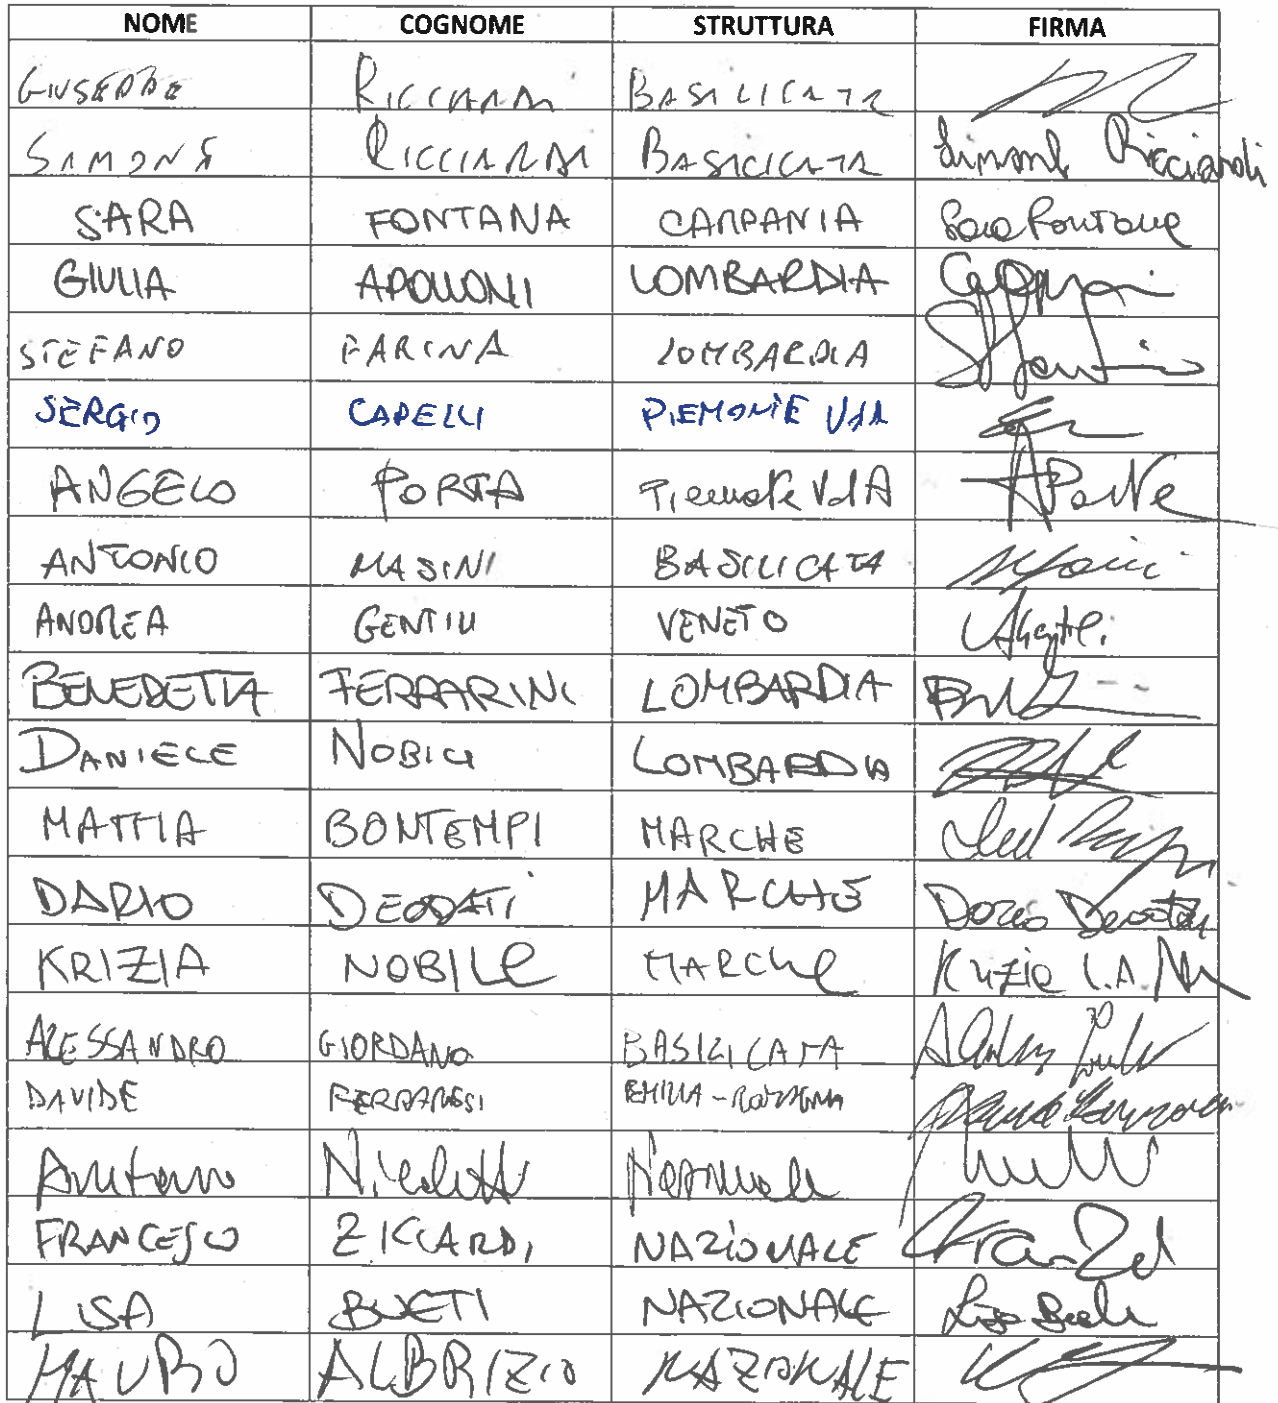 NOME COGNOME STRUTTURA FIRMA
GIUSEPPE RICCIARDI BASILICATA
SIMONE RICCIARDI BASILICATA Simone Ricciardi
SARA FONTANA CAMPANIA Sara Fontana
GIULIA APOLLONI LOMBARDIA
STEFANO FARINA LOMBARDIA
SERGIO CAPELLI PIEMONTE VDA
ANGELO PORTA Piemonte VdA APorta
ANTONIO MASINI BASILICATA
ANDREA GENTILI VENETO
BENEDETTA FERRARINI LOMBARDIA
DANIELE NOBILI LOMBARDIA
MATTIA BONTEMPI MARCHE
DARIO DEODATI MARCHE Dario Deodati
KRIZIA NOBILE MARCHE Krizia L.A.
ALESSANDRO GIORDANO BASILICATA
DAVIDE FERRARESI EMILIA-ROMAGNA
Antonio Nicoletti Nazionale
FRANCESCO ZICCARDI NAZIONALE
LISA BUETI NAZIONALE Lisa Bueti
MAURO ALBRIZIO NAZIONALE